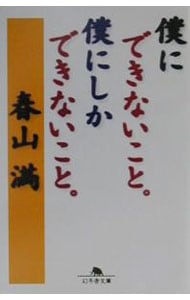 僕に
できないこと。
僕にしか
できないこと。
春山 満
幻冬舎文庫